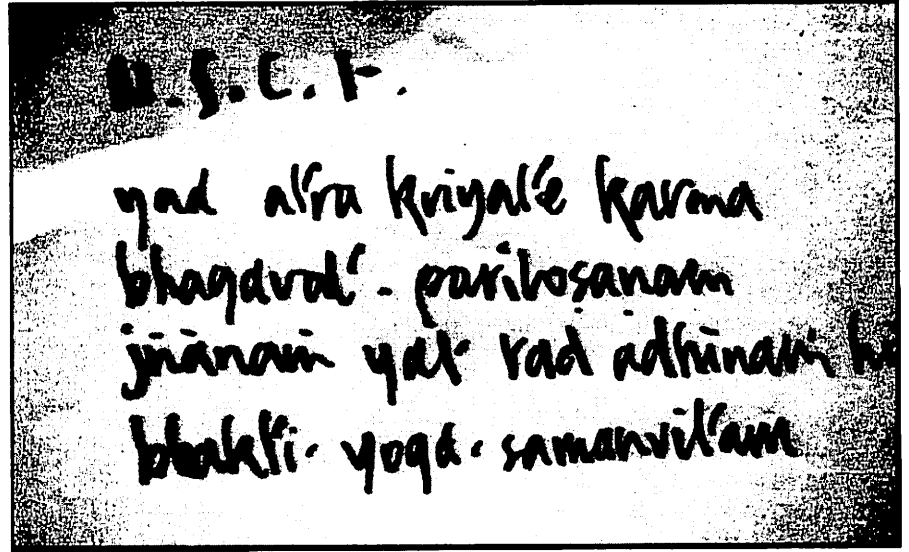 yad atra kriyate karma
bhagavat - paritosanam
jñānam yat tad adhīnam
bhakti - yoga - samanvitam